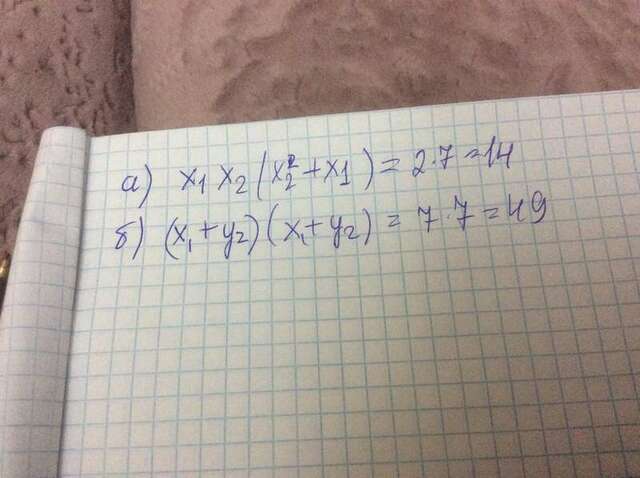 а) x₁ x₂ (x₂² + x₁) = 2·7 = 14
б) (x₁ + y₂)(x₁ + y₂) = 7·7 = 49